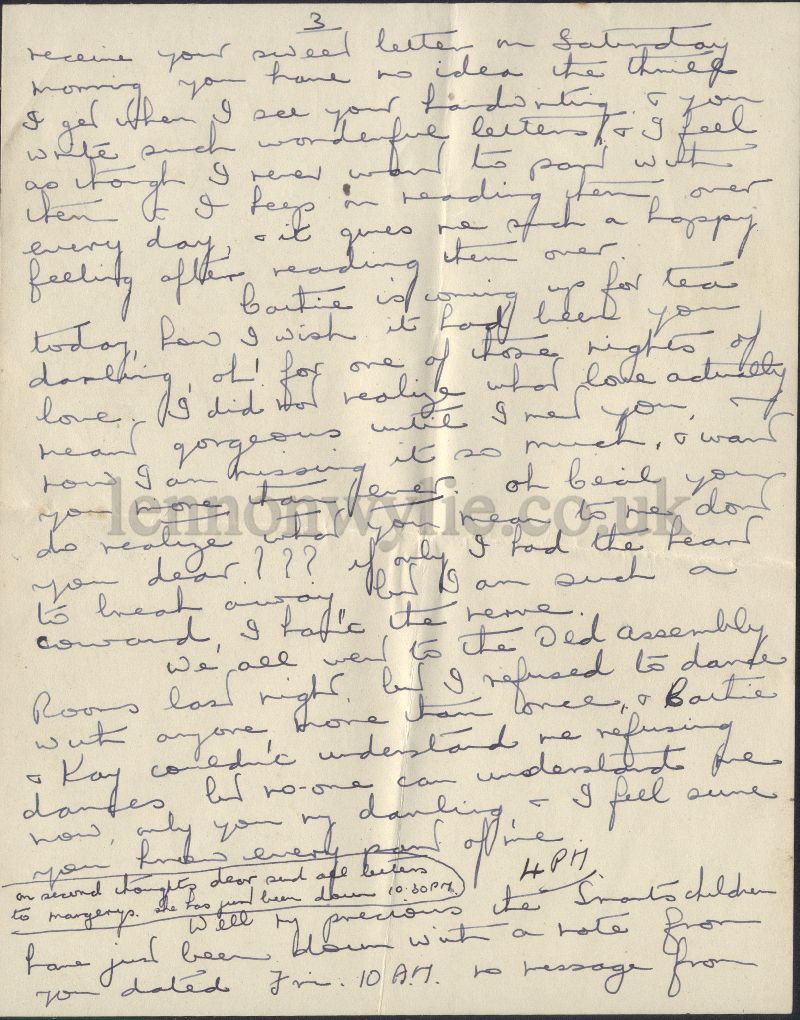 3
receive your sweet letter on Saturday
morning you have no idea the thrill
I get when I see your handwriting, & you
write such wonderful letters, & I feel
as though I never want to part with
them & I keep on reading them over
every day, & it gives me such a happy
feeling after reading them over.
Bartie is coming up for tea
today, how I wish it had been you
darling, oh! for one of those nights of
love. I did not realize what love actually
meant gorgeous until I met you, &
now I am missing it so much, & want
you more than ever. oh Cecil you
do realize what you mean to me, dont
you dear??? if only I had the heart
to break away but I am such a
coward, I hav't the nerve.
We all went to the Old Assembly
Rooms last night, but I refused to dance
with anyone more than once, & Bartie
& Kay couldn't understand me refusing
dances, but no-one can understand me
now, only you my darling, & I feel sure
you know every part of me.
on second thoughts dear send all letters
to margerys. she has just been down 10.30PM.
4 PM.
Well my precious the Smarts children
have just been down with a note from
you dated Fri. 10 A.M. no message from
lennonwylie.co.uk